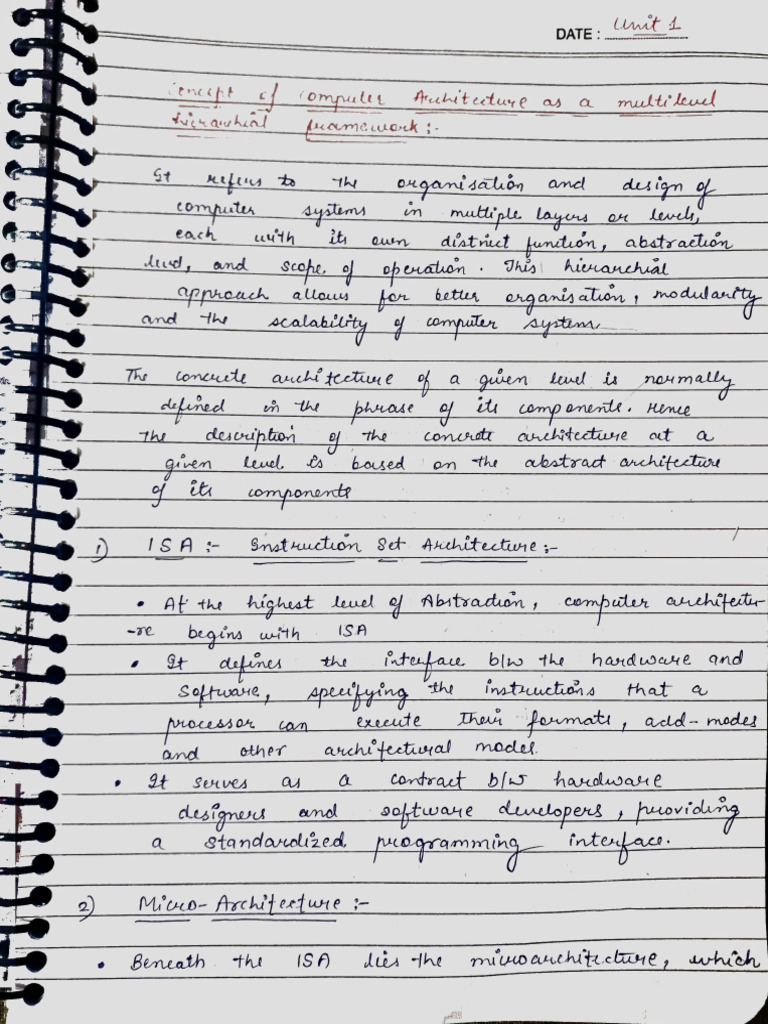 DATE : Unit 1
Concept of Computer Architecture as a multilevel
hierarchial framework :-
It refers to the organisation and design of
computer systems in multiple layers or levels,
each with its own district function, abstraction
level, and scope of operation. This hierarchial
approach allows for better organisation, modularity
and the scalability of computer system
The concrete architecture of a given level is normally
defined in the phrase of its components. Hence
the description of the concrete architecture at a
given level is based on the abstract architecture
of its components
1) ISA :- Instruction Set Architecture :-
• At the highest level of Abstraction, computer architectu-
-re begins with ISA
• It defines the interface b/w the hardware and
Software, specifying the instructions that a
processor can execute their formats, add-modes
and other architectural modes.
• It serves as a contract b/w hardware
designers and software developers, providing
a standardized programming interface.
2) Micro-Architecture :-
• Beneath the ISA lies the microarchitecture, which